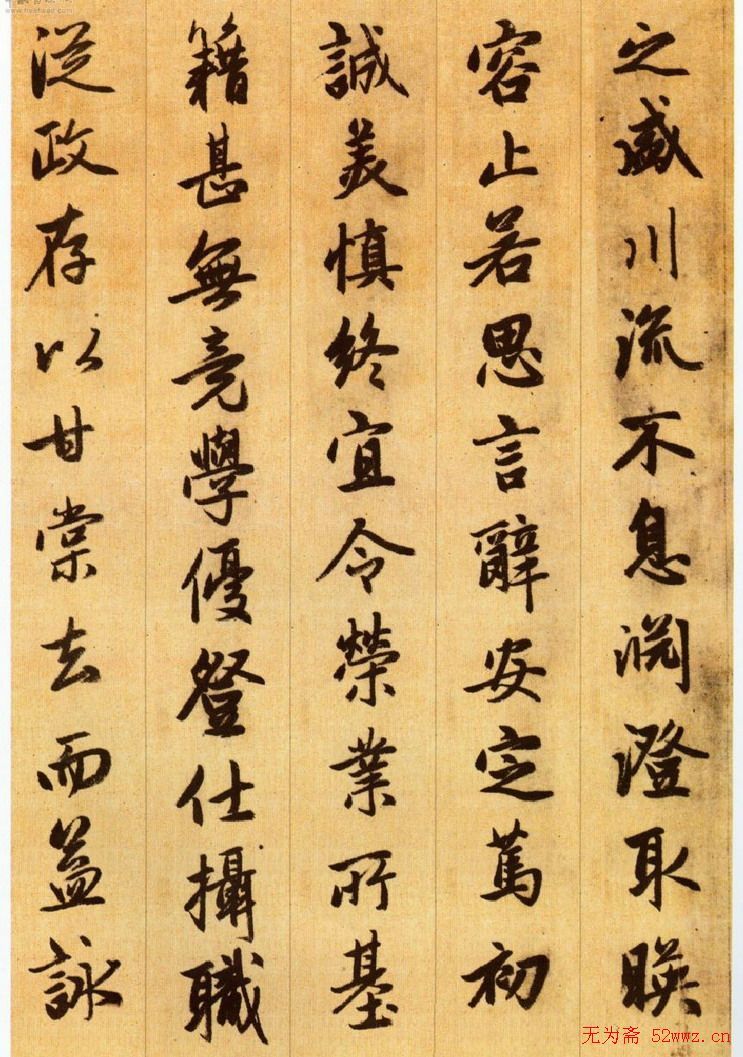 之盛川流不息渊澄取暎
容止若思言辭安定篤初
誠美慎終宜令榮業所基
籍甚無竟學優登仕攝職
從政存以甘棠去而益詠
无为斋 52wwz.cn